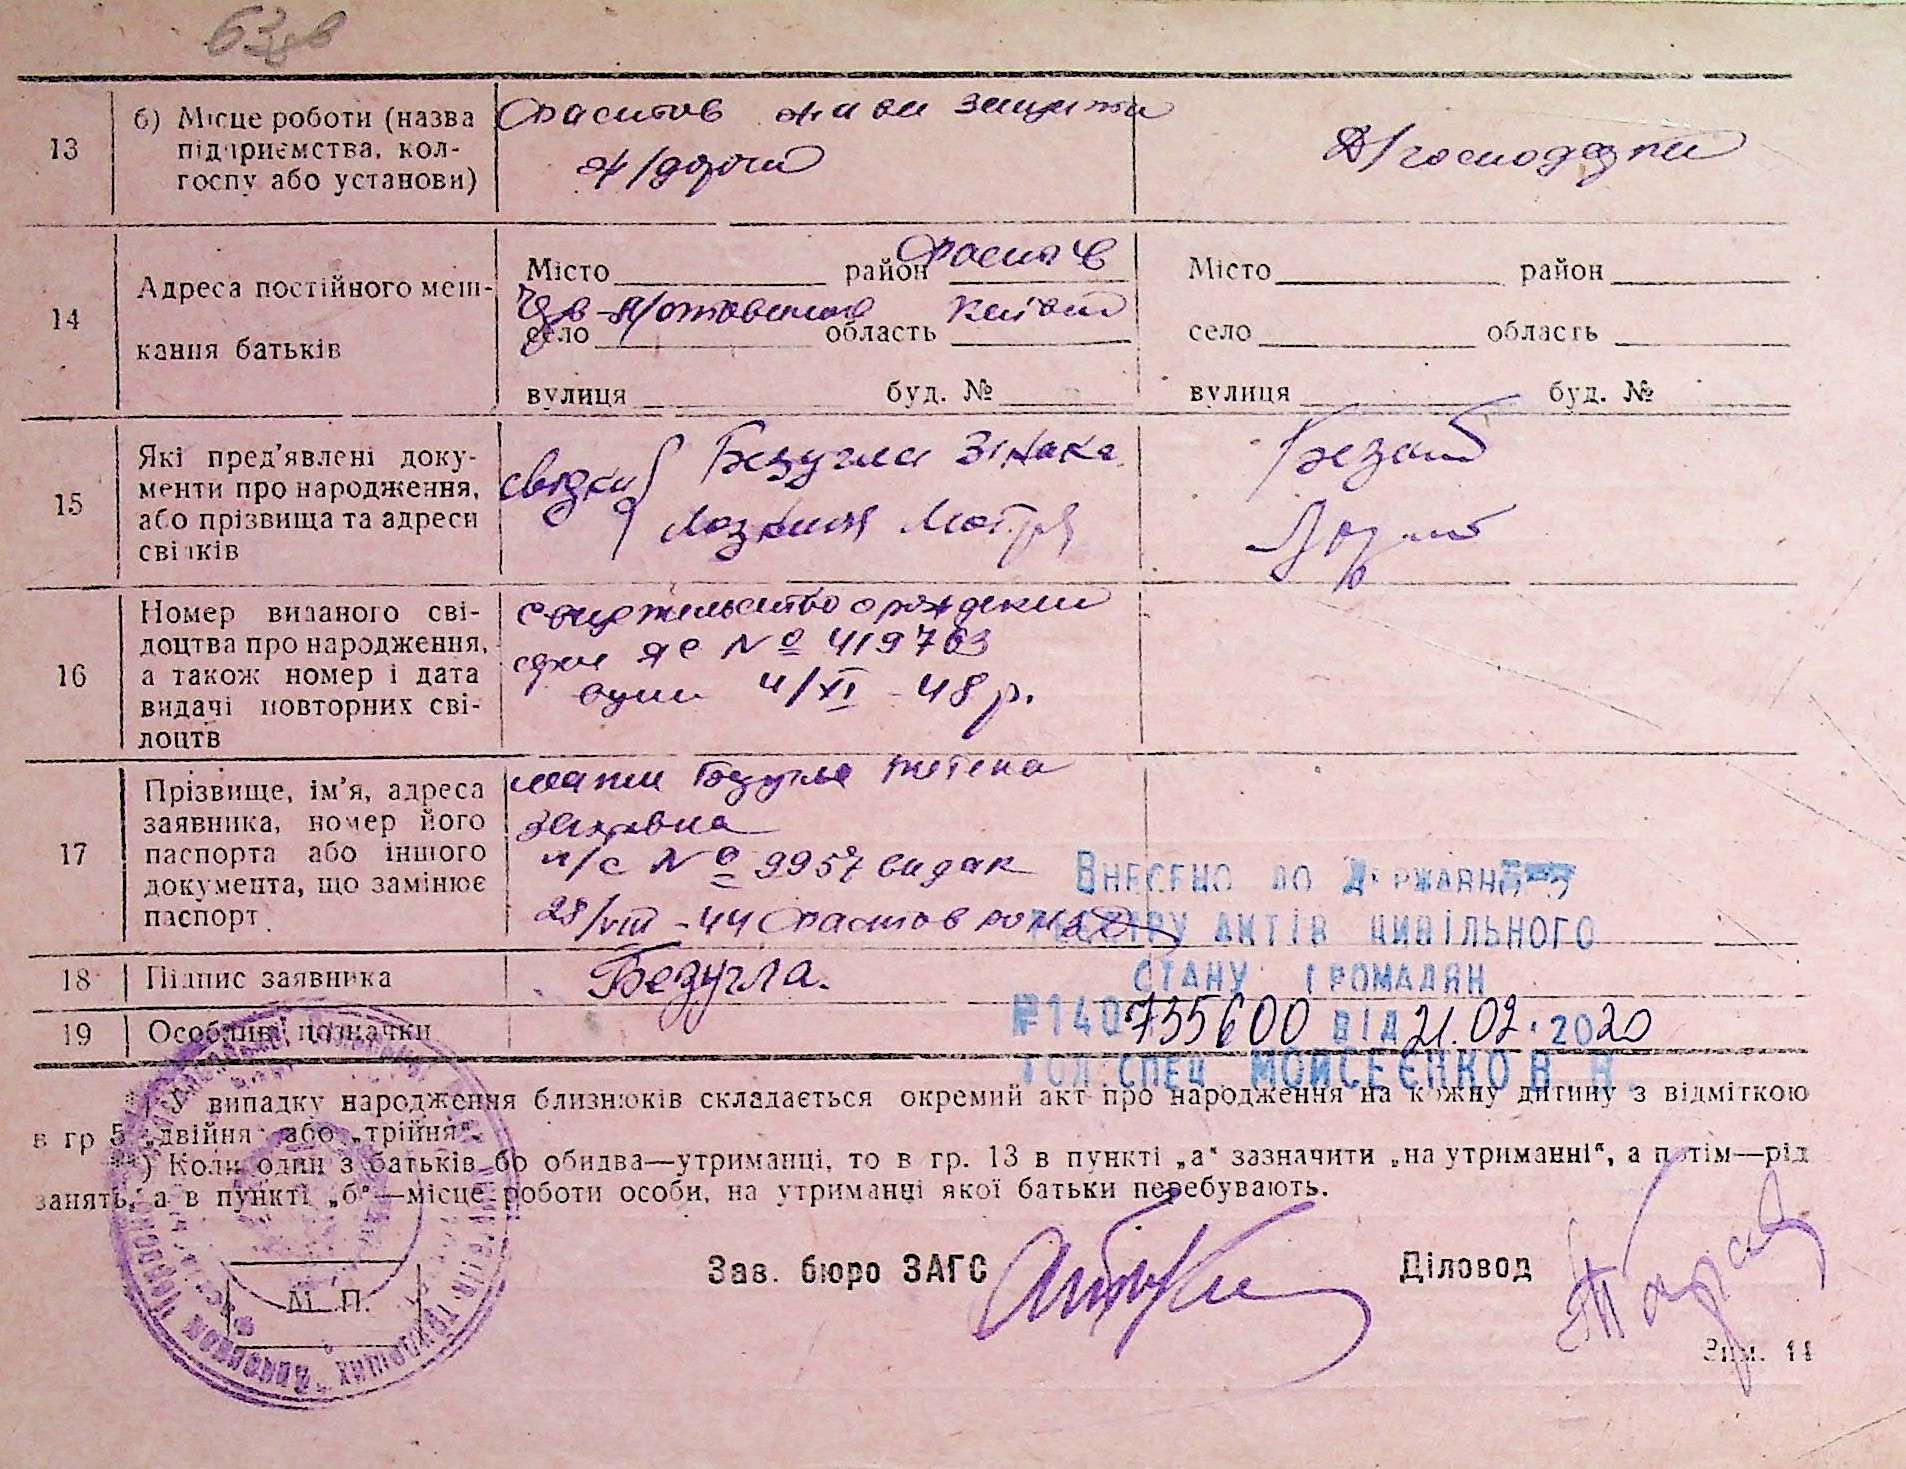 13
б) Місце роботи (назва
підприємства, кол-
госпу або установи)
Фастов
ж/дороги
Д/господарки
14
Адреса постійного меш-
кання батьків
Місто район Фастів
село область Київськ
вулиця буд. №
Місто район
село область
вулиця буд. №
15
Які пред'явлені доку-
менти про народження,
або прізвища та адреси
свідків
свідки
Безугла Зінька
Мотря
16
Номер виданого сві-
доцтва про народження,
а також номер і дата
видачі повторних сві-
доцтв
свидетельство о рождении
ЯС № 419763
4/XI - 48 р.
17
Прізвище, ім'я, адреса
заявника, номер його
паспорта або іншого
документа, що замінює
паспорт
мати Безугла Тетяна
п/с № 9957 видан
28/VIII - 44 Фастов
Внесено до Державного
реєстру актів цивільного
стану громадян
№140 735600 від 21.02.2020
гол.спец. Мойсеєнко В. В.
18
Підпис заявника
Безугла.
19
Особливі позначки
*) У випадку народження близнюків складається окремий акт про народження на кожну дитину з відміткою
в гр 5 „двійня" або „трійня".
**) Коли один з батьків бо обидва—утриманці, то в гр. 13 в пункті „а" зазначити „на утриманні", а потім—рід
занять, а в пункті „б"—місце роботи особи, на утриманці якої батьки перебувають.
Зав. бюро ЗАГС
Діловод
М. П.
Зам. 44